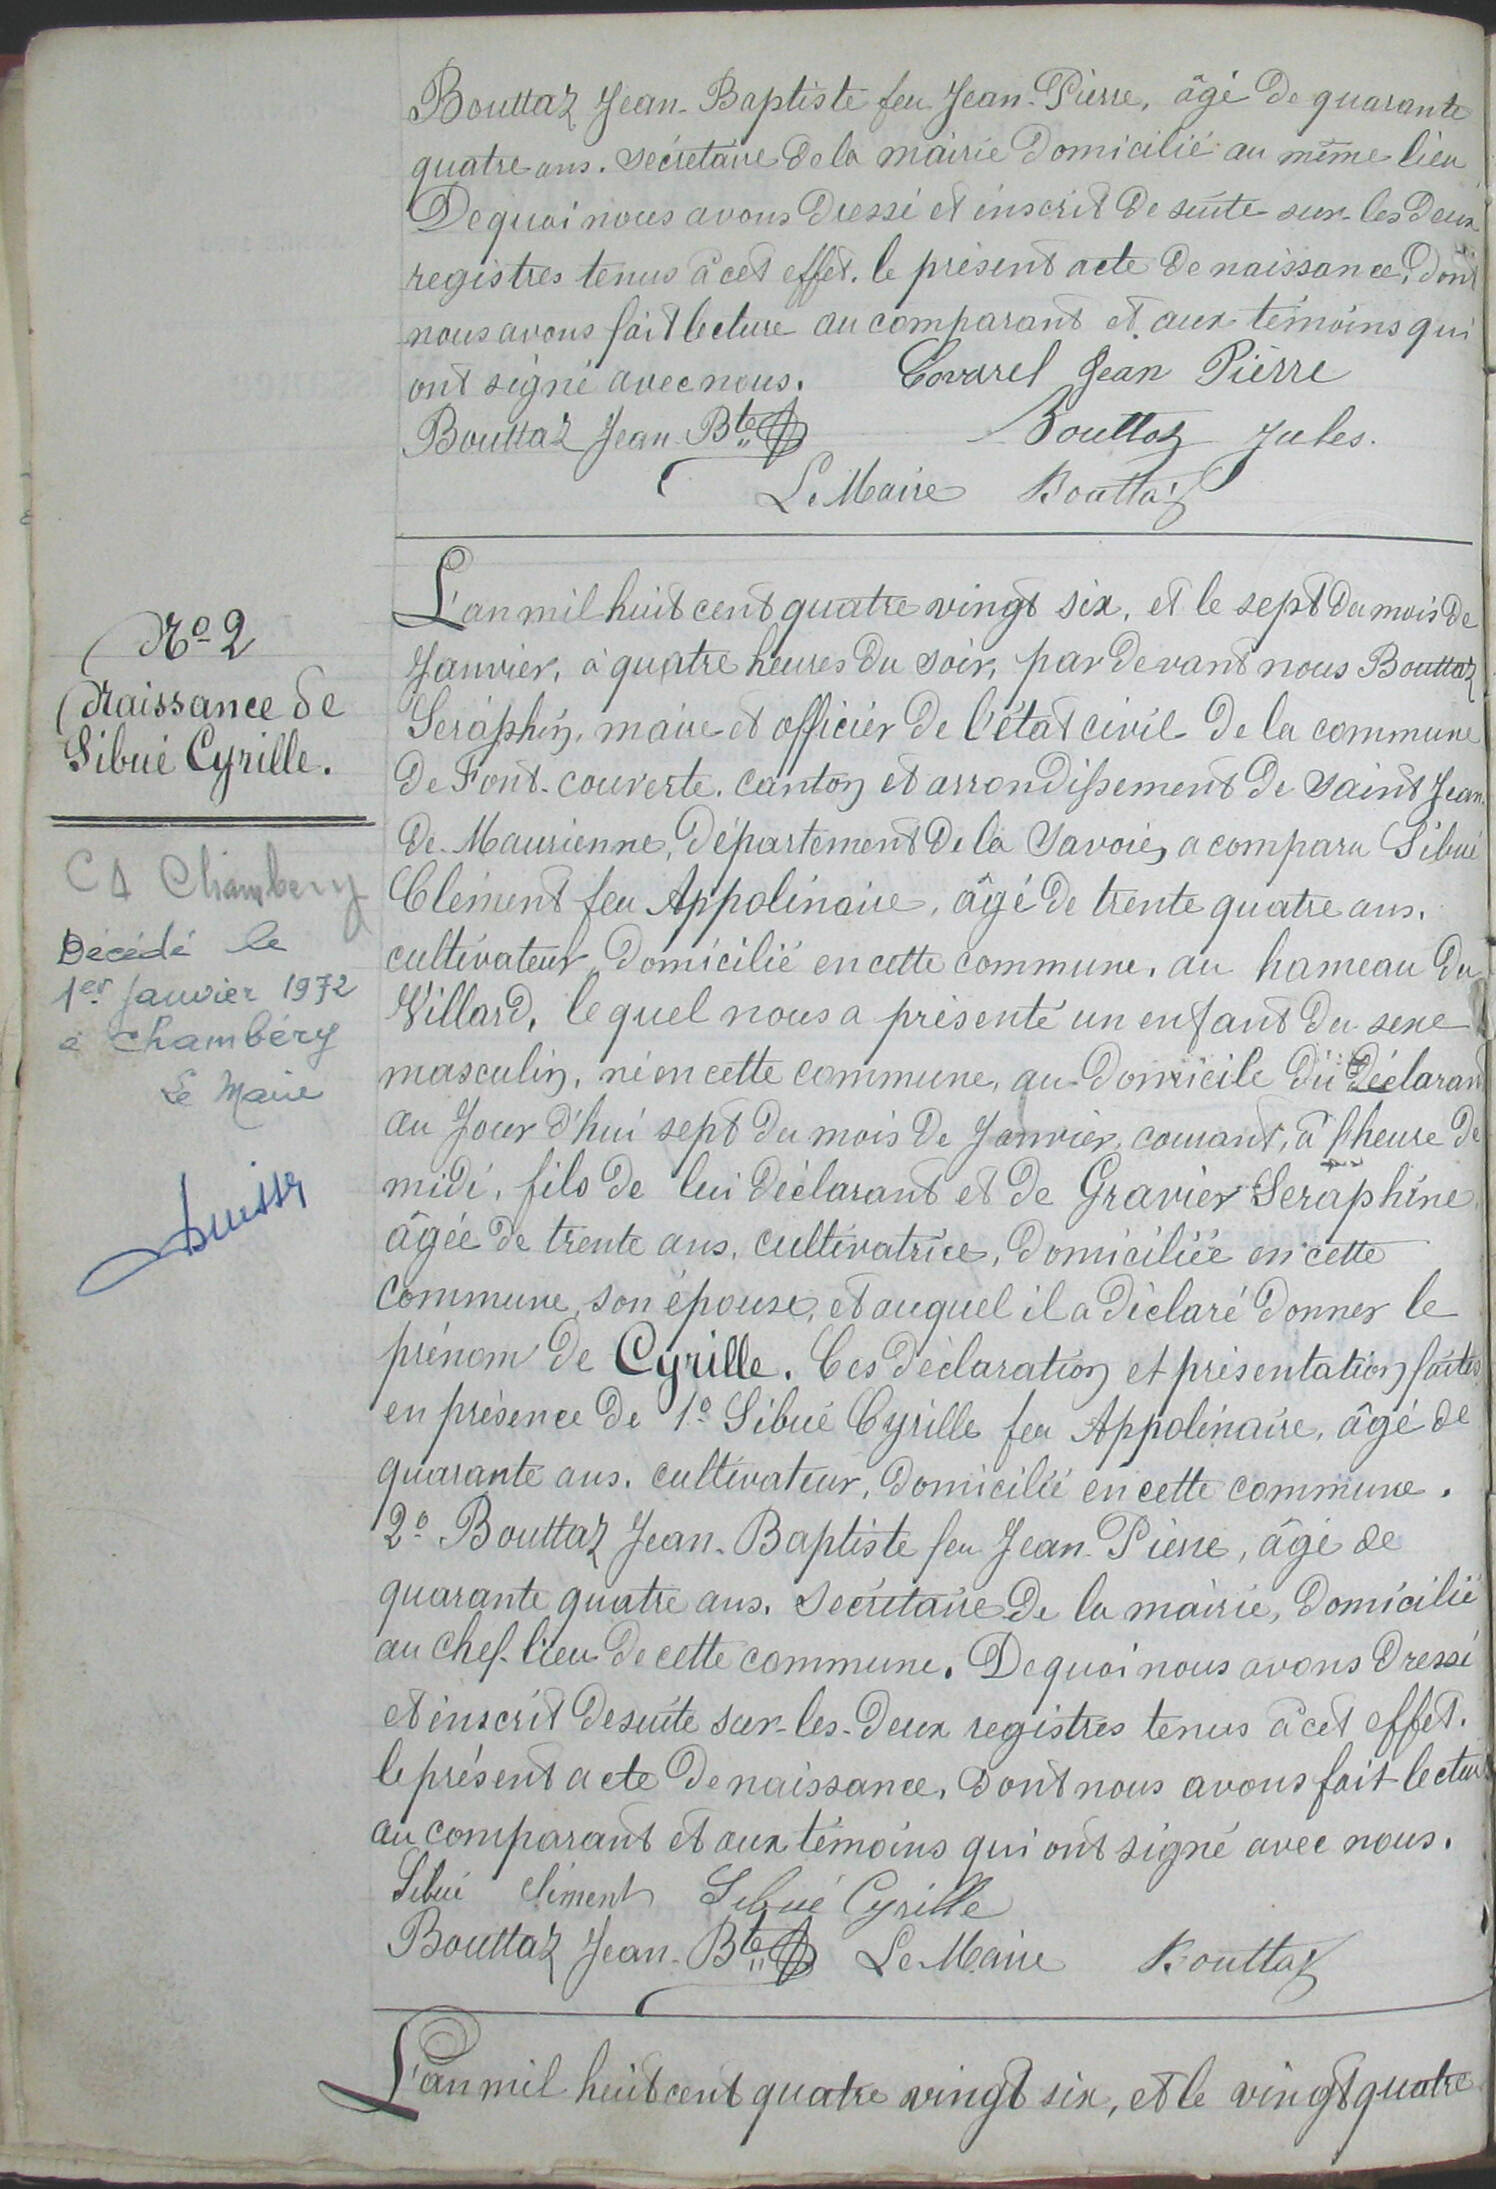 Bouttaz Jean-Baptiste feu Jean-Pierre, âgé de quarante
quatre ans. secrétaire de la mairie domicilié au même lieu
De quoi nous avons dressé et inscrit de suite sur-les deux
registres tenus à cet effet. le présent acte de naissance, dont
nous avons fait lecture au comparant et aux témoins qui
ont signé avec nous. Covarel Jean Pierre
Bouttaz Jean-Bte Bouttaz Jules.
Le Maire Bouttaz
No 2
Naissance de
Sibué Cyrille.
CA Chambery
Décédé le
1er Janvier 1972
à Chambéry
Le Maire
L'an mil huit cent quatre vingt six, et le sept du mois de
Janvier, à quatre heures du soir, par devant nous Bouttaz
Seraphin, maire et officier de l'état civil de la commune
de Font-couverte. canton et arrondissement de Saint Jean
de-Maurienne, département de la Savoie, a comparu Sibué
Clément feu Appolinaire, âgé de trente quatre ans.
cultivateur domicilié en cette commune. au hameau du
Villard, le quel nous a présenté un enfant du sexe
masculin, né en cette commune, au domicile du déclarant
au Jour d'hui sept du mois de Janvier, courant, à l'heure de
midi, fils de lui déclarant et de Gravier Seraphine
âgée de trente ans, cultivatrice, domiciliée en cette
commune, son épouse, et auquel il a déclaré donner le
prénom de Cyrille. Ces déclaration et présentation faites
en présence de 1o Sibué Cyrille feu Appolinaire, âgé de
quarante ans. cultivateur, domicilié en cette commune.
2o Bouttaz Jean-Baptiste feu Jean-Pierre, âgé de
quarante quatre ans. Secrétaire de la mairie, domicilié
au chef-lieu de cette commune. De quoi nous avons dressé
et inscrit de suite sur-les-deux registres tenus à cet effet.
le présent acte de naissance, dont nous avons fait lecture
au comparant et aux témoins qui ont signé avec nous.
Sibué clément Sibué Cyrille
Bouttaz Jean-Bte Le Maire Bouttaz
L'an mil huit cent quatre vingt six, et le vingt quatre